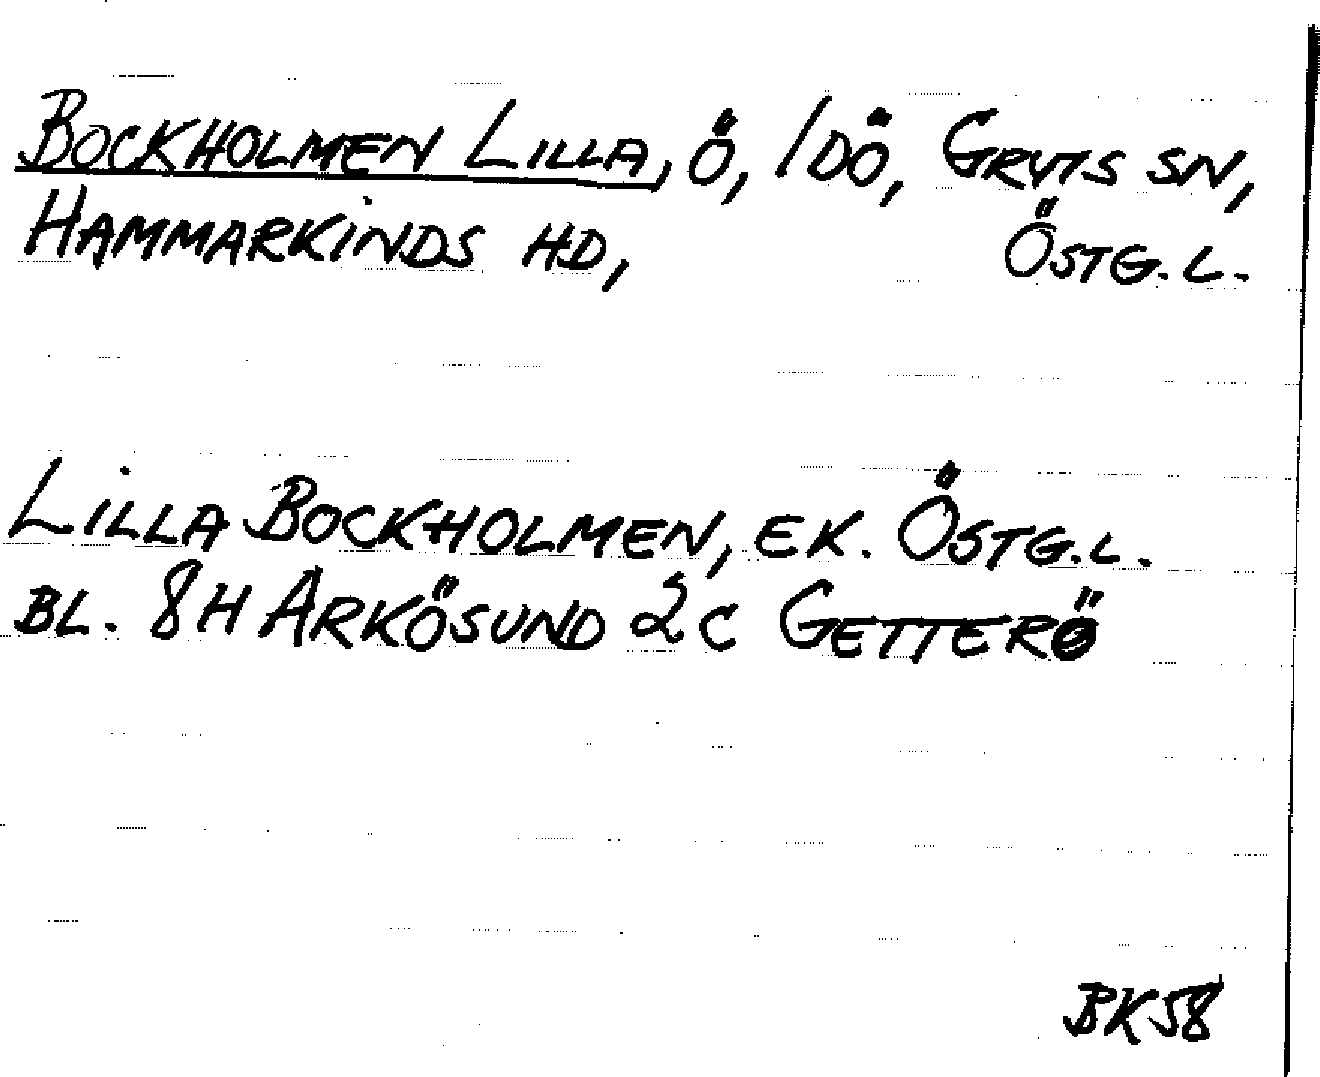 BOCKHOLMEN LILLA, Ö, IDÖ, GRYTS SN,
HAMMARKINDS HD, ÖSTG. L.
LILLA BOCKHOLMEN, EK. ÖSTG. L.
BL. 8H ARKÖSUND 2C GETTERÖ
BK58